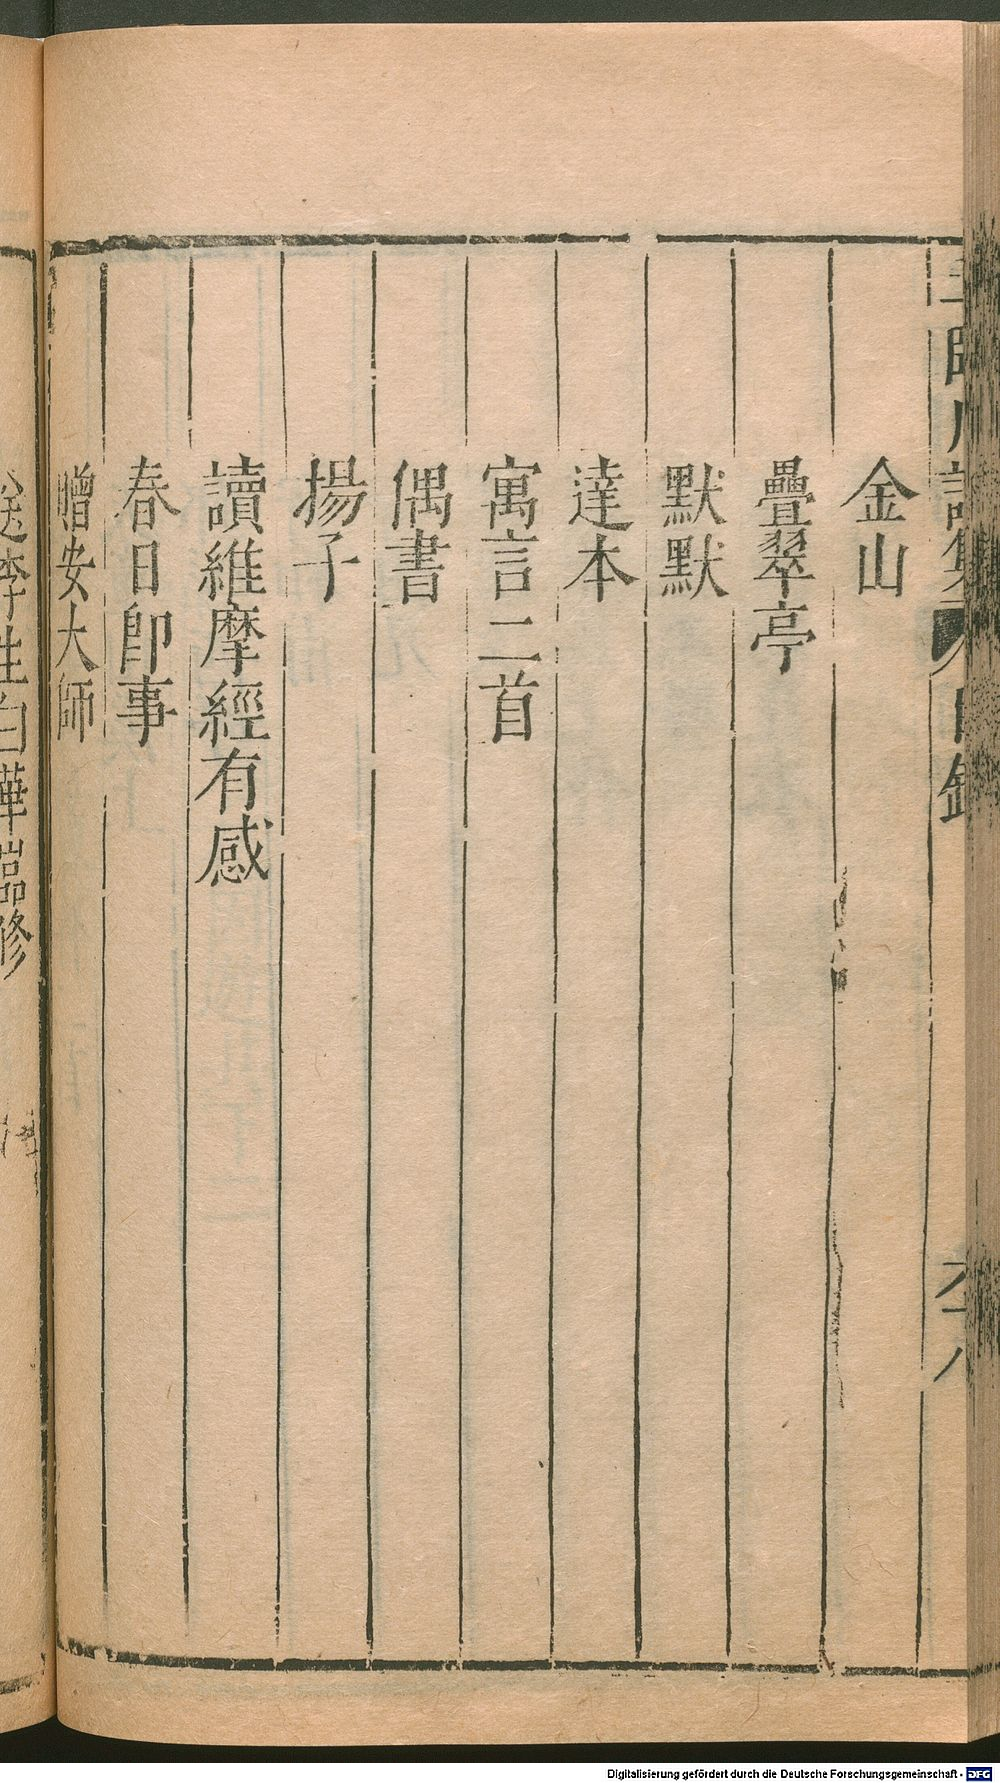 金山
疊翠亭
默默
達本
寓言二首
偶書
揚子
讀維摩經有感
春日即事
贈安大師
送李生白華嵓修
Digitalisierung gefördert durch die Deutsche Forschungsgemeinschaft - DFG